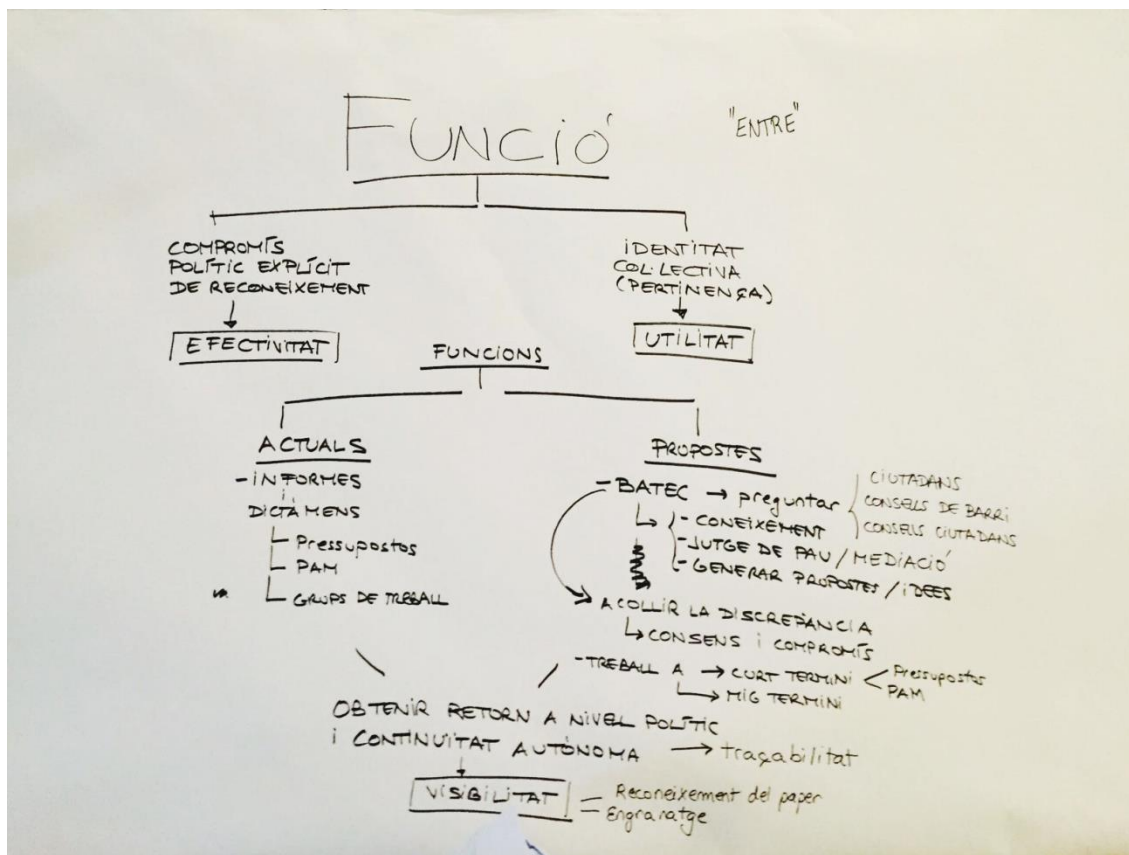 FUNCIÓ
"ENTRE"
COMPROMÍS
POLÍTIC EXPLÍCIT
DE RECONEIXEMENT
EFECTIVITAT
IDENTITAT
COL·LECTIVA
(PERTINENÇA)
UTILITAT
FUNCIONS
ACTUALS
- INFORMES
i
DICTÀMENS
Pressupostos
PAM
GRUPS DE TREBALL
PROPOSTES
- BATEC → preguntar
CIUTADANS
CONSELLS DE BARRI
CONSELLS CIUTADANS
- CONEIXEMENT
- JUTGE DE PAU / MEDIACIÓ
- GENERAR PROPOSTES / IDEES
ACOLLIR LA DISCREPÀNCIA
CONSENS I COMPROMÍS
- TREBALL A → CURT TERMINI
Pressupostos
PAM
→ MIG TERMINI
OBTENIR RETORN A NIVELL POLÍTIC
I CONTINUÏTAT AUTÒNOMA → traçabilitat
VISIBILITAT
Reconeixement del paper
Engranatge